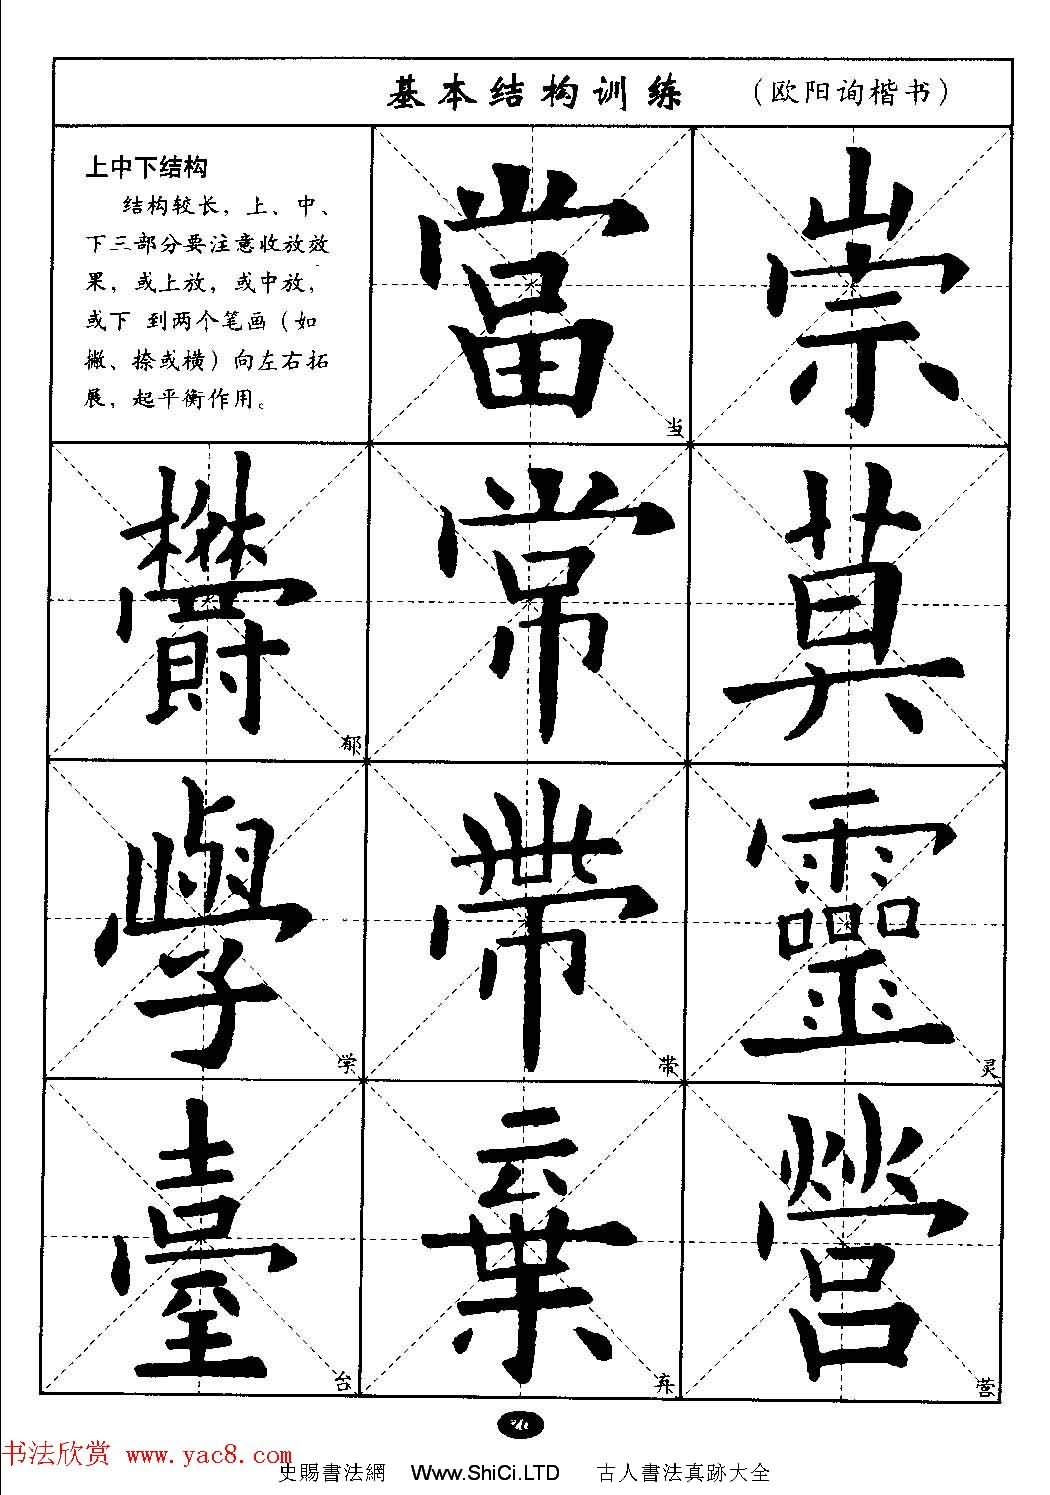 基本结构训练 （欧阳询楷书）
上中下结构
结构较长，上、中、
下三部分要注意收放效
果，或上放，或中放，
或下 到两个笔画（如
撇、捺或横）向左右拓
展，起平衡作用。
當 崇
当
欝 常 莫
郁
學 帶 靈
学 带 灵
臺 棄 營
台 弃 营
书法欣赏 www.yac8.com
史賜書法網 Www.ShiCi.LTD 古人書法真跡大全